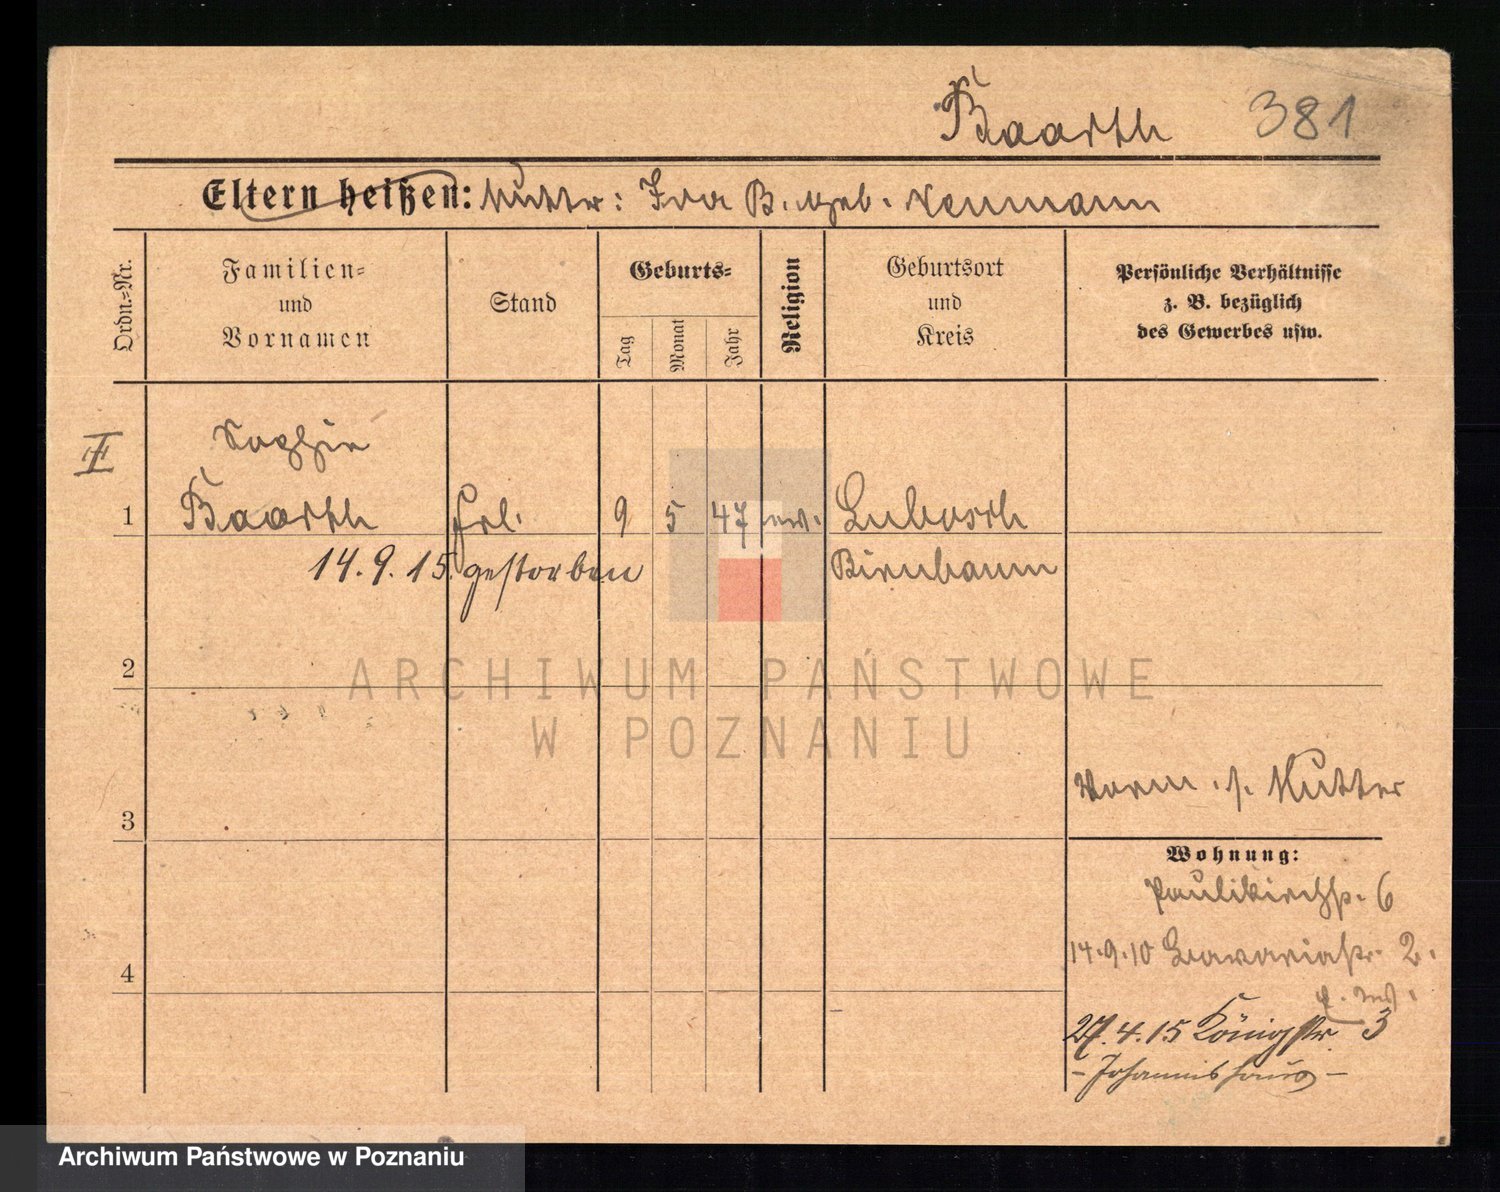 Baarth 381
Eltern heißen: Mutter: Ida B. geb. Neumann
Ordn.=Nr.
Familien=
und
Vornamen
Stand
Geburts=
Tag
Monat
Jahr
Religion
Geburtsort
und
Kreis
Persönliche Verhältnisse
z. B. bezüglich
des Gewerbes usw.
II
Sophie
1 Baarth Frl. 9 5 47 ev. Lubosch
14.9.15. gestorben Birnbaum
2
ARCHIWUM PAŃSTWOWE
W POZNANIU
Vorm. s. Mutter
3
Wohnung:
Paulikirchstr. 6
14.9.10 2.
4
27.4.15 Königstr. 3
- Johannishaus -
Archiwum Państwowe w Poznaniu